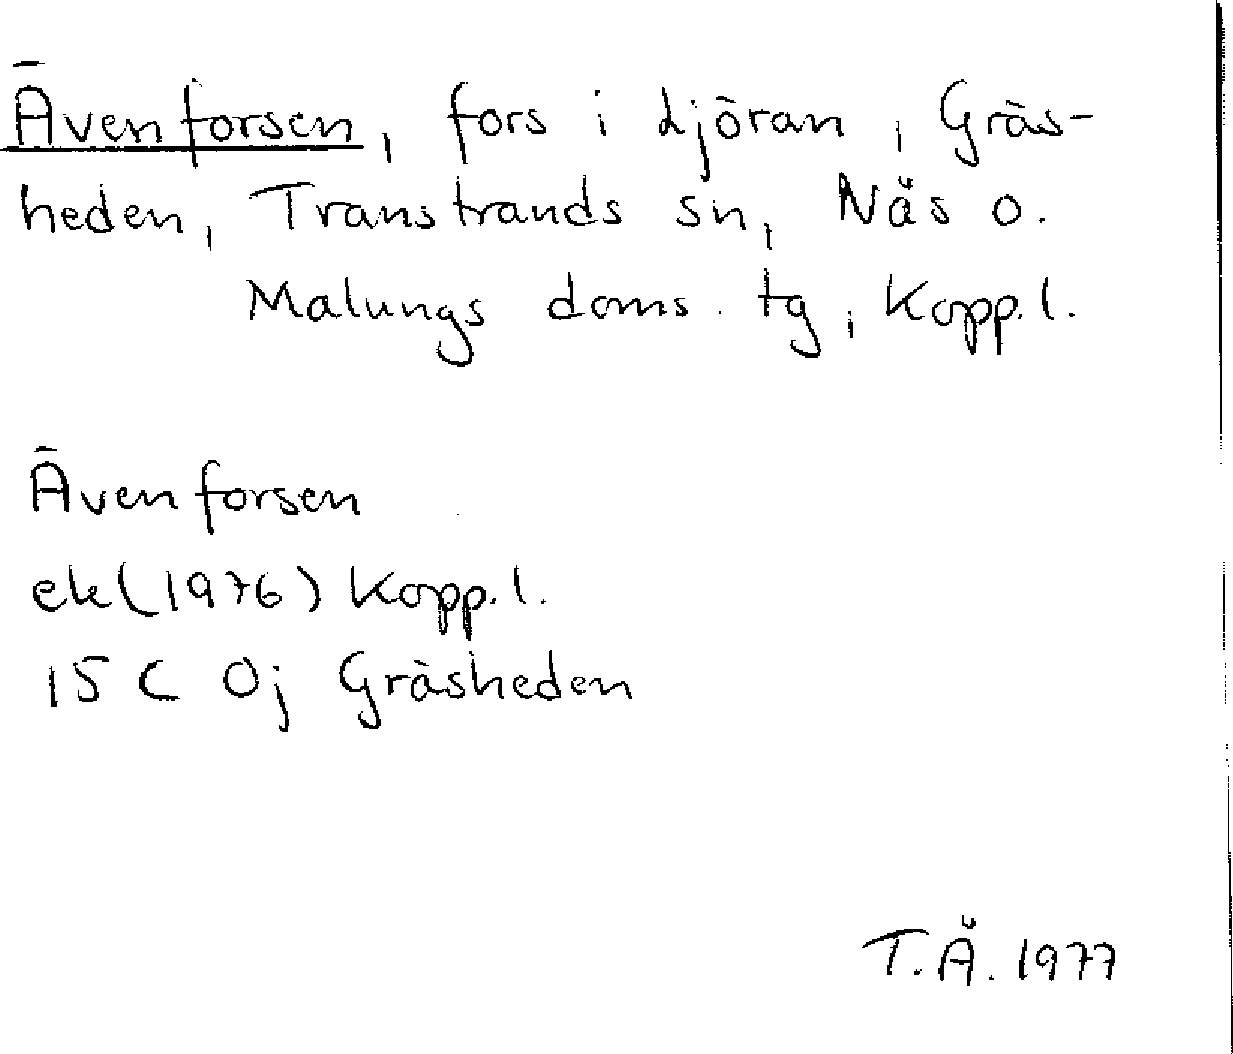 Ävenforsen, fors i Ljöran, Gräs-
heden, Transtrands sn, Nås o.
Malungs doms. tg, Kopp. l.
Ävenforsen
ek (1976) Kopp. l.
15 C 0j Gräsheden
T.Å. 1977